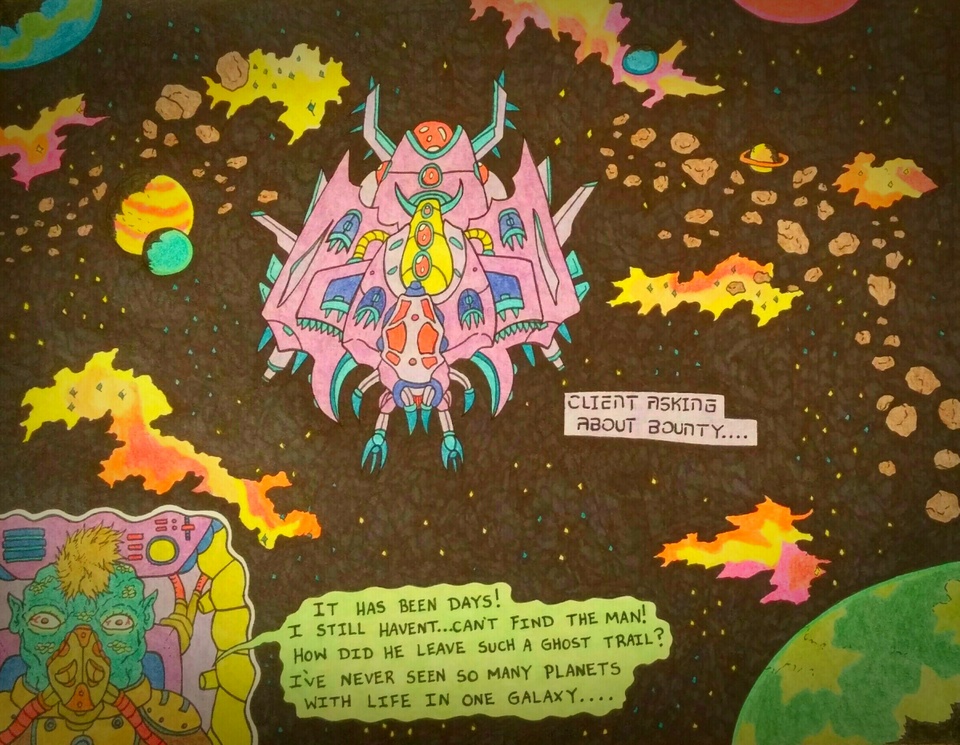 CLIENT ASKING
ABOUT BOUNTY....
IT HAS BEEN DAYS!
I STILL HAVENT...CAN'T FIND THE MAN!
HOW DID HE LEAVE SUCH A GHOST TRAIL?
I'VE NEVER SEEN SO MANY PLANETS
WITH LIFE IN ONE GALAXY....